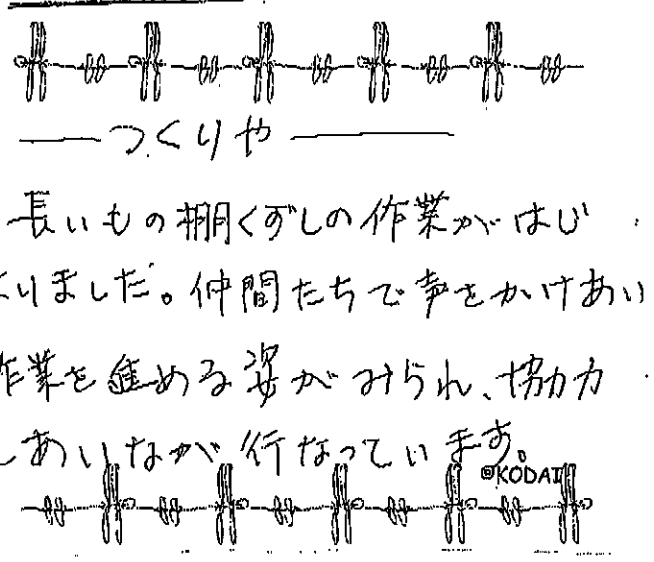 つくりや
長いもの棚くずしの作業がはじ
まりました。仲間たちで声をかけあい
作業を進める姿がみられ、協力
しあいなが行なっています。
©KODAI